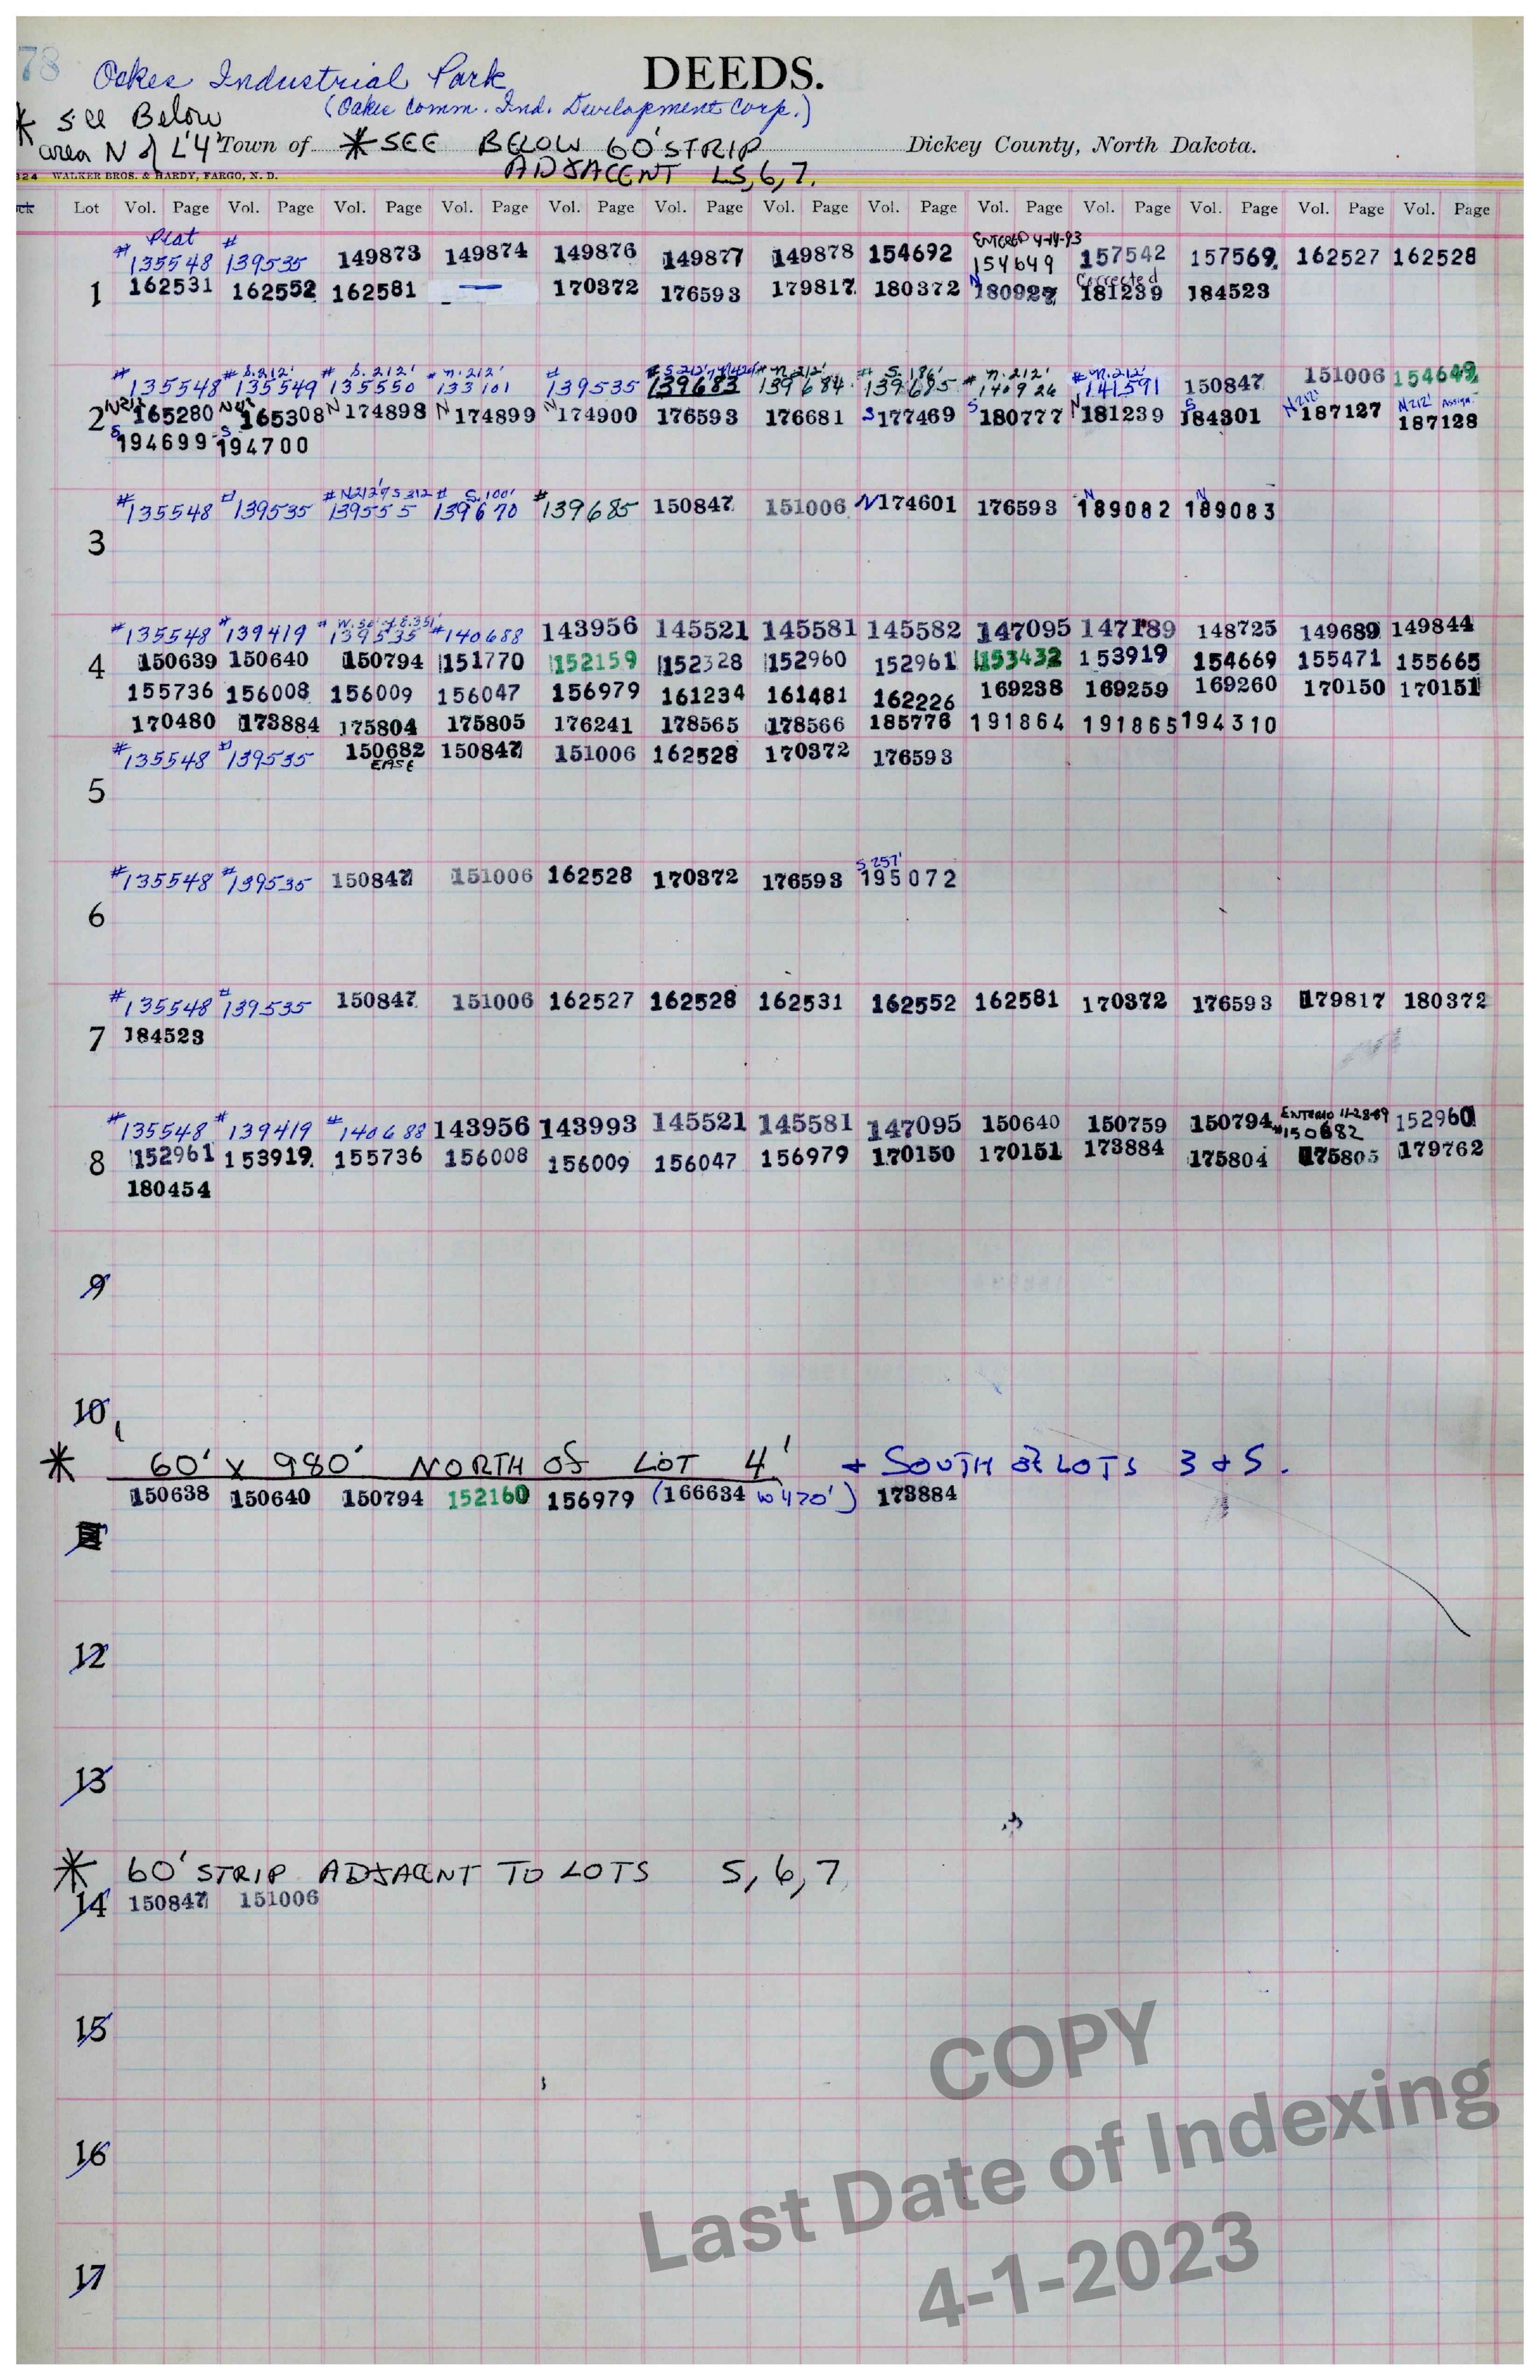 78
Oakes Industrial Park
DEEDS.
(Oakes Comm. Ind. Development Corp.)
* See Below
area N of L'4' Town of * SEE BELOW 60' STRIP Dickey County, North Dakota.
ADJACENT L5,6,7.
324 WALKER BROS. & HARDY, FARGO, N. D.
Lot Vol. Page Vol. Page Vol. Page Vol. Page Vol. Page Vol. Page Vol. Page Vol. Page Vol. Page Vol. Page Vol. Page Vol. Page Vol. Page
Plat ENTERED 4-14-93
#135548 #139535 149873 149874 149876 149877 149878 154692 154649 157542 157569 162527 162528
Corrected
1 162531 162552 162581 — 170372 176593 179817 180372 N 180927 181239 184523
S.212' S.212' N.212' N.212' S.186' N.212' N.212'
#135548 #135549 #135550 #133101 #139535 #139683 #139684 #139685 #140926 #141591 150847 151006 154649
2 N212' 165280 N212' 165308 N 174898 N 174899 N 174900 176593 176681 S 177469 S 180777 N 181239 S 184301 N212' 187127 N212' Assign. 187128
S 194699 S 194700
N212' S312 S.100'
#135548 #139535 #139555 #139670 #139685 150847 151006 N 174601 176593 N 189082 N 189083
3
#135548 #139419 #139535 #140688 143956 145521 145581 145582 147095 147189 148725 149689 149844
4 150639 150640 150794 151770 152159 152328 152960 152961 153432 153919 154669 155471 155665
155736 156008 156009 156047 156979 161234 161481 162226 169238 169259 169260 170150 170151
170480 173884 175804 175805 176241 178565 178566 185776 191864 191865 194310
#135548 #139535 150682 150847 151006 162528 170372 176593
EASE
5
S 257'
#135548 #139535 150847 151006 162528 170372 176593 195072
6
#135548 #139535 150847 151006 162527 162528 162531 162552 162581 170372 176593 179817 180372
7 184523
ENTERED 11-28-89
#135548 #139419 #140688 143956 143993 145521 145581 147095 150640 150759 150794 #150682 152960
8 152961 153919 155736 156008 156009 156047 156979 170150 170151 173884 175804 175805 179762
180454
9
10
* 60' x 980' NORTH OF LOT 4' + SOUTH of LOTS 3 & 5.
150638 150640 150794 152160 156979 (166634 W 470') 173884
12
13
* 60' STRIP ADJACENT TO LOTS 5, 6, 7
14 150847 151006
15
16
17
COPY
Last Date of Indexing
4-1-2023